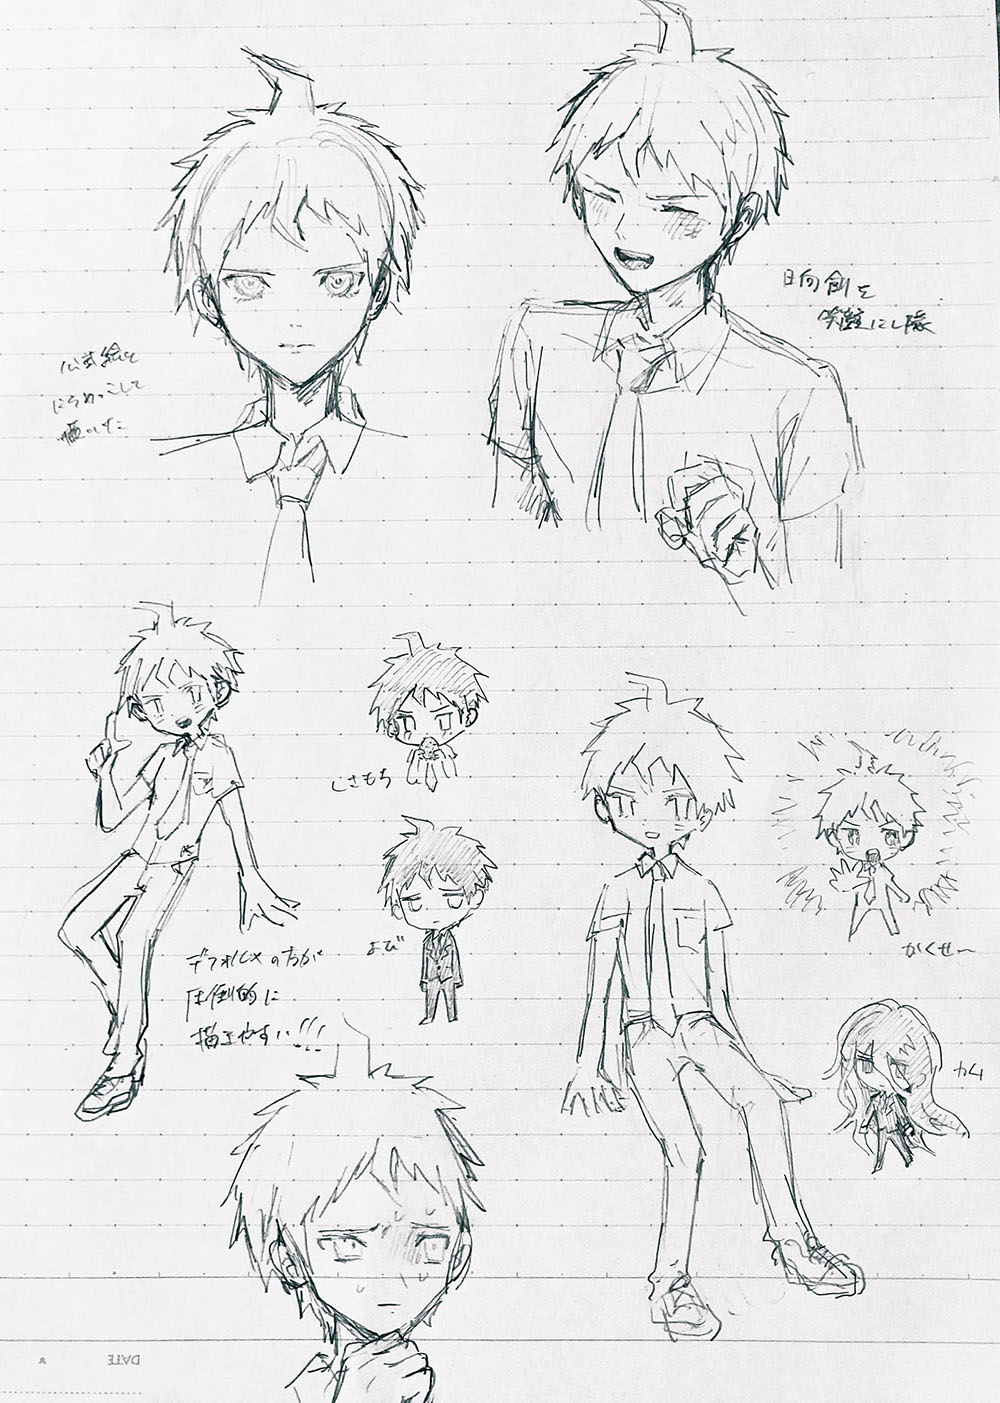 公式絵と
にらめっこして
描いた
日向創を
笑顔にし隊
くさもち
よび
デフォルメの方が
圧倒的に
描きやすい!!!
かくせ〜
カム
DATE